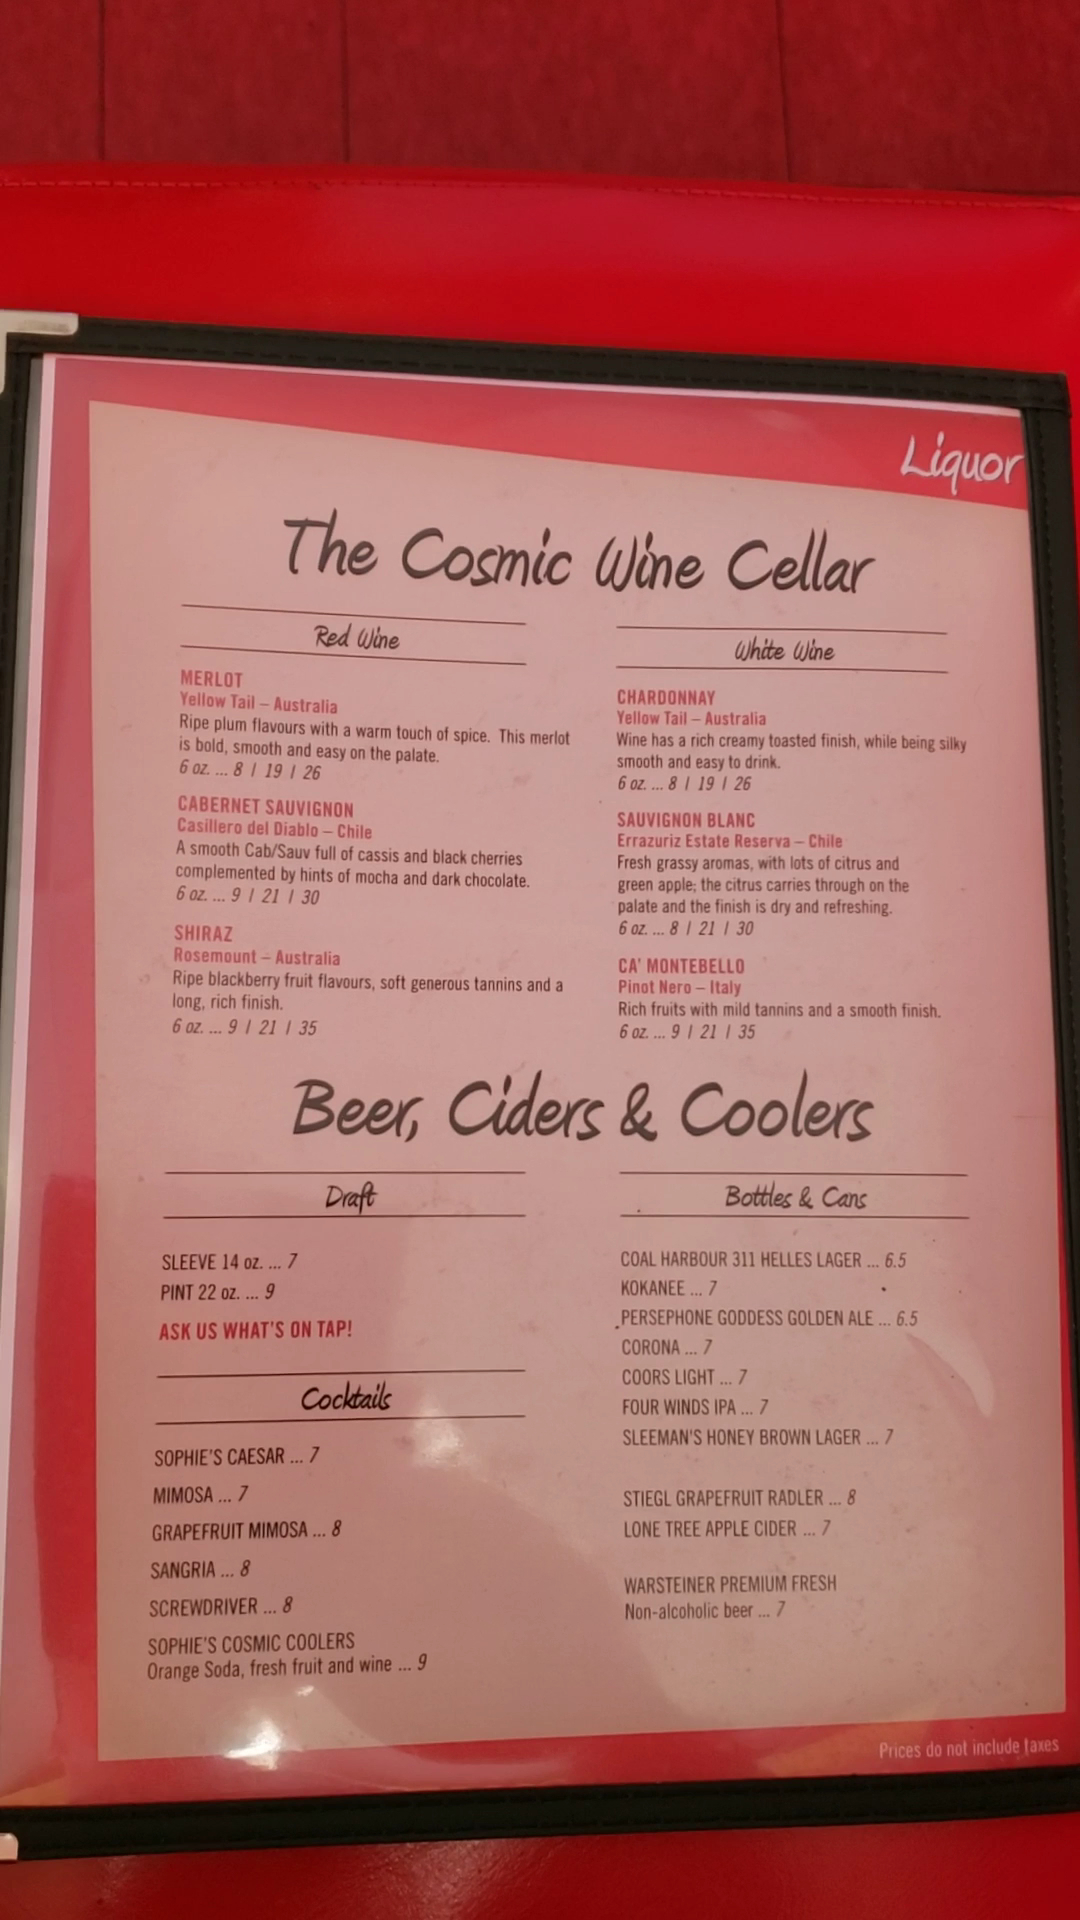 Liquor
The Cosmic Wine Cellar
Red Wine
MERLOT
Yellow Tail – Australia
Ripe plum flavours with a warm touch of spice. This merlot
is bold, smooth and easy on the palate.
6 oz. ... 8 | 19 | 26
CABERNET SAUVIGNON
Casillero del Diablo – Chile
A smooth Cab/Sauv full of cassis and black cherries
complemented by hints of mocha and dark chocolate.
6 oz. ... 9 | 21 | 30
SHIRAZ
Rosemount – Australia
Ripe blackberry fruit flavours, soft generous tannins and a
long, rich finish.
6 oz. ... 9 | 21 | 35
White Wine
CHARDONNAY
Yellow Tail – Australia
Wine has a rich creamy toasted finish, while being silky
smooth and easy to drink.
6 oz. ... 8 | 19 | 26
SAUVIGNON BLANC
Errazuriz Estate Reserva – Chile
Fresh grassy aromas, with lots of citrus and
green apple; the citrus carries through on the
palate and the finish is dry and refreshing.
6 oz. ... 8 | 21 | 30
CA' MONTEBELLO
Pinot Nero – Italy
Rich fruits with mild tannins and a smooth finish.
6 oz. ... 9 | 21 | 35
Beer, Ciders & Coolers
Draft
SLEEVE 14 oz. ... 7
PINT 22 oz. ... 9
ASK US WHAT'S ON TAP!
Cocktails
SOPHIE'S CAESAR ... 7
MIMOSA ... 7
GRAPEFRUIT MIMOSA ... 8
SANGRIA ... 8
SCREWDRIVER ... 8
SOPHIE'S COSMIC COOLERS
Orange Soda, fresh fruit and wine ... 9
Bottles & Cans
COAL HARBOUR 311 HELLES LAGER ... 6.5
KOKANEE ... 7
PERSEPHONE GODDESS GOLDEN ALE ... 6.5
CORONA ... 7
COORS LIGHT ... 7
FOUR WINDS IPA ... 7
SLEEMAN'S HONEY BROWN LAGER ... 7
STIEGL GRAPEFRUIT RADLER ... 8
LONE TREE APPLE CIDER ... 7
WARSTEINER PREMIUM FRESH
Non-alcoholic beer ... 7
Prices do not include taxes